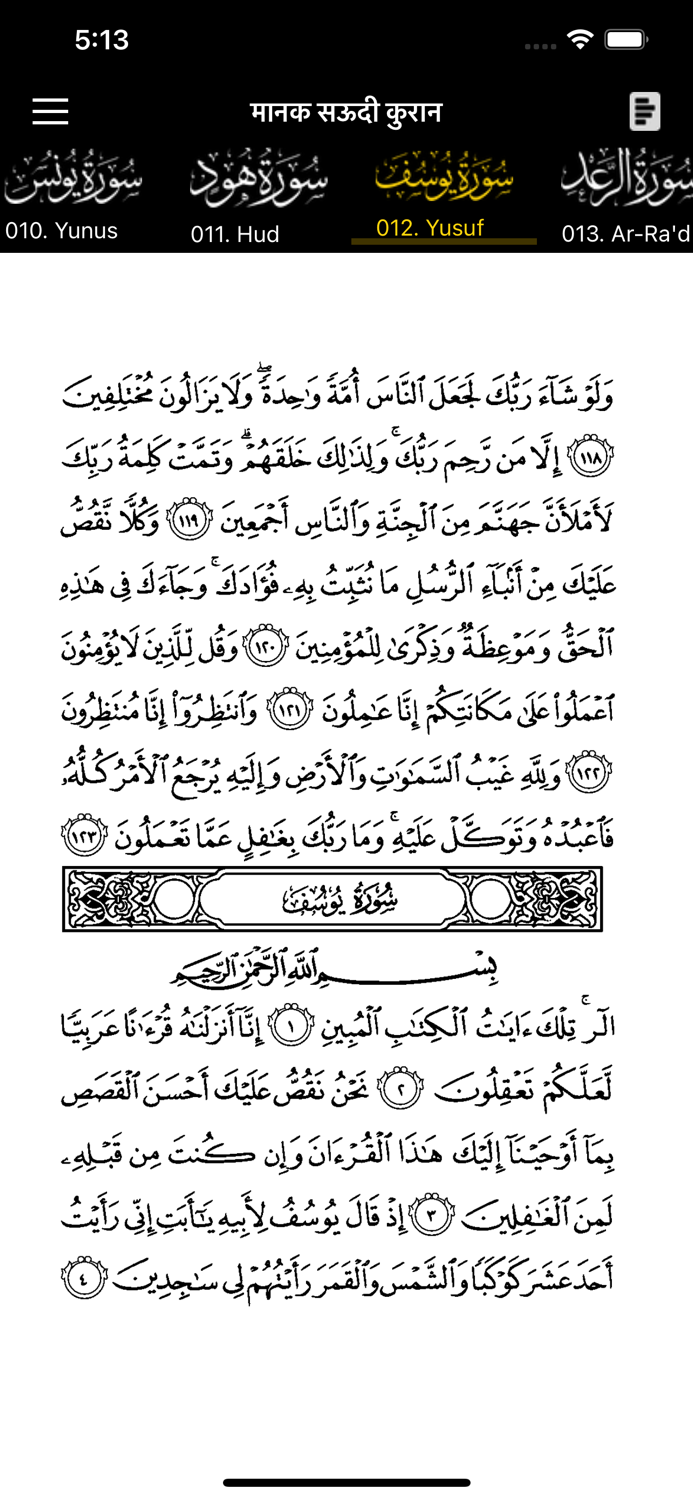 5:13
मानक सऊदी कुरान
سُورَةُ يُونُسَ
سُورَةُ هُودٍ
سُورَةُ يُوسُفَ
سُورَةُ الرَّعْدِ
010. Yunus
011. Hud
012. Yusuf
013. Ar-Ra'd
وَلَوْ شَآءَ رَبُّكَ لَجَعَلَ ٱلنَّاسَ أُمَّةً وَٰحِدَةً ۖ وَلَا يَزَالُونَ مُخْتَلِفِينَ
١١٨ إِلَّا مَن رَّحِمَ رَبُّكَ ۚ وَلِذَٰلِكَ خَلَقَهُمْ ۗ وَتَمَّتْ كَلِمَةُ رَبِّكَ
لَأَمْلَأَنَّ جَهَنَّمَ مِنَ ٱلْجِنَّةِ وَٱلنَّاسِ أَجْمَعِينَ ١١٩ وَكُلًّا نَّقُصُّ
عَلَيْكَ مِنْ أَنۢبَآءِ ٱلرُّسُلِ مَا نُثَبِّتُ بِهِۦ فُؤَادَكَ ۚ وَجَآءَكَ فِى هَٰذِهِ
ٱلْحَقُّ وَمَوْعِظَةٌ وَذِكْرَىٰ لِلْمُؤْمِنِينَ ١٢٠ وَقُل لِّلَّذِينَ لَا يُؤْمِنُونَ
ٱعْمَلُوا۟ عَلَىٰ مَكَانَتِكُمْ إِنَّا عَٰمِلُونَ ١٢١ وَٱنتَظِرُوٓا۟ إِنَّا مُنتَظِرُونَ
١٢٢ وَلِلَّهِ غَيْبُ ٱلسَّمَٰوَٰتِ وَٱلْأَرْضِ وَإِلَيْهِ يُرْجَعُ ٱلْأَمْرُ كُلُّهُۥ
فَٱعْبُدْهُ وَتَوَكَّلْ عَلَيْهِ ۚ وَمَا رَبُّكَ بِغَٰفِلٍ عَمَّا تَعْمَلُونَ ١٢٣
سُورَةُ يُوسُفَ
بِسْمِ ٱللَّهِ ٱلرَّحْمَٰنِ ٱلرَّحِيمِ
الٓر ۚ تِلْكَ ءَايَٰتُ ٱلْكِتَٰبِ ٱلْمُبِينِ ١ إِنَّآ أَنزَلْنَٰهُ قُرْءَٰنًا عَرَبِيًّا
لَّعَلَّكُمْ تَعْقِلُونَ ٢ نَحْنُ نَقُصُّ عَلَيْكَ أَحْسَنَ ٱلْقَصَصِ
بِمَآ أَوْحَيْنَآ إِلَيْكَ هَٰذَا ٱلْقُرْءَانَ وَإِن كُنتَ مِن قَبْلِهِۦ
لَمِنَ ٱلْغَٰفِلِينَ ٣ إِذْ قَالَ يُوسُفُ لِأَبِيهِ يَٰٓأَبَتِ إِنِّى رَأَيْتُ
أَحَدَ عَشَرَ كَوْكَبًا وَٱلشَّمْسَ وَٱلْقَمَرَ رَأَيْتُهُمْ لِى سَٰجِدِينَ ٤